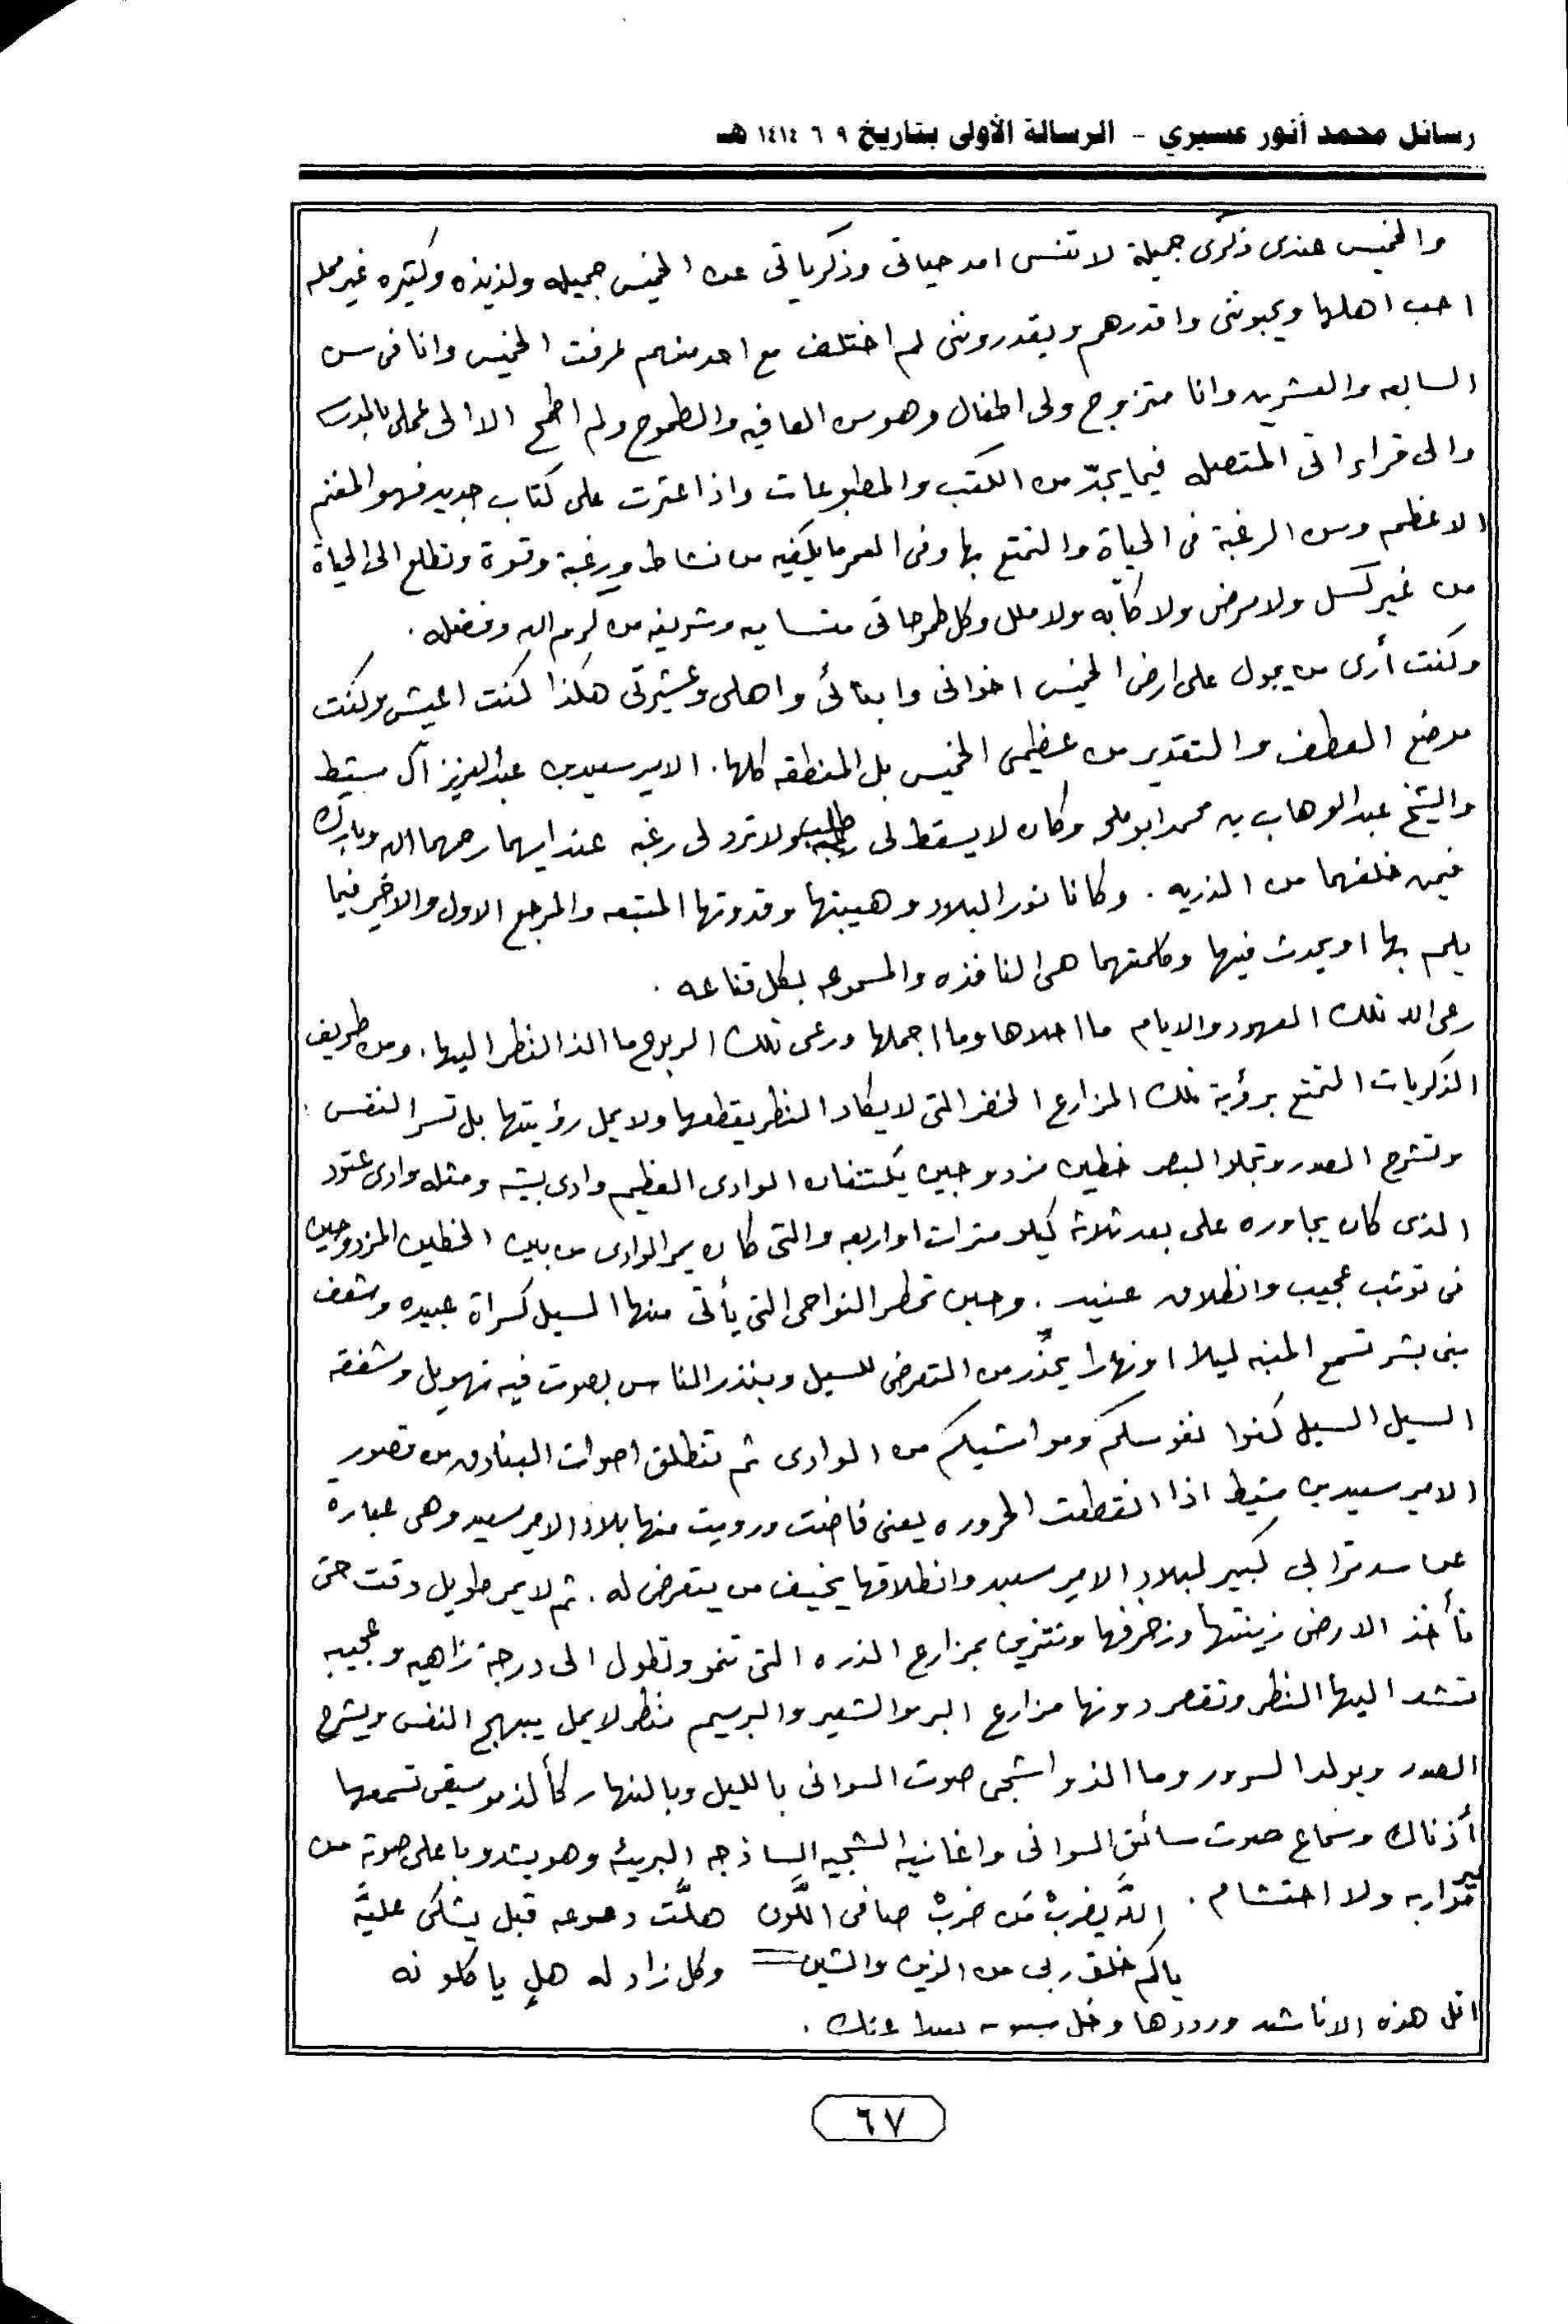 رسائل محمد أنور عسيري - الرسالة الأولى بتاريخ ٩ ٦ ١٤١٤ هـ
والخميس عندى ذكرى جميلة لا تنسى امد حياتى وذكرياتى عن الخميس جميله ولذيذه وكثيره غير مملة
احب اهلها ويحبوننى واقدرهم ويقدروننى لم اختلف مع احد منهم عرفت الخميس وانا فى سن
السابعه والعشرين وانا متزوج ولى اطفال وهو سن العافيه والطموح ولم اطمح الا الى عملى بالمدرسه
والى قراءاتى المتصله فيما يجدّ من الكتب والمطبوعات واذا عثرت على كتاب جديد فهو المغنم
الاعظم وسن الرغبة فى الحياة والتمتع بها وفى العمر ما يكفيه من نشاط ورغبة وقوة وتطلع الى الحياة
من غير كسل ولا مرض ولا كآبه ولا ملل وكل طموحاتى متساميه وشريفه من كرم الله وفضله .
وكنت أرى من يجول على ارض الخميس اخوانى وابنائى واهلى وعشيرتى هكذا كنت اعيش وكنت
موضع العطف والتقدير من عظيمى الخميس بل المنطقه كلها . الامير سعيد بن عبدالعزيز آل مشيط
والشيخ عبدالوهاب بن محمد ابو ملحه وكان لا يسقط لى طلب ولا ترد لى رغبه عند ايهما رحمهما الله وبارك
فيمن خلفهما من الذريه . وكانا نور البلاد وهيبتها وقدوتها المتبعه والمرجع الاول والاخير فيما
يلم بها او يحدث فيها وكلمتهما هى النافذه والمسموعه بكل قناعه .
رعى الله تلك العهود والايام ما احلاها وما اجملها ورعى تلك الربوع ما الذ النظر اليها . ومن طريف
الذكريات التمتع برؤية تلك المزارع الخضر التى لا يكاد النظر يقطعها ولا يمل رؤيتها بل تسر النفس
وتشرح الصدر وتجلو البصر خطين مزدوجين يكتنفان الوادى العظيم وادى بيشه ومثله وادى عتود
الذى كان يجاوره على بعد ثلاثة كيلو مترات او اربعه والتى كان يمر الوادى من بين الخطين المزدوجين
فى توثب عجيب وانطلاق عنيد . وحين تمطر النواحى التى يأتى منها السيل كسراة عبيده وشعف
بنى بشر تسمع المنبه ليلا او نهارا يحذّر من التعرض للسيل وينذر الناس بصوت فيه تهويل وشفقه
السيل السيل كفوا نفوسكم ومواشيكم من الوادى ثم تنطلق اصوات البنادق من قصور
الامير سعيد بن مشيط اذا انقطعت الحروره يعنى فاضت ورويت منها بلاد الامير سعيد وهى عبارة
عن سد ترابى كبير لبلاد الامير سعيد وانطلاقها يخيف من يتعرض له . ثم لا يمر طويل وقت حتى
تأخذ الارض زينتها وزخرفها وتتزين بمزارع الذره التى تنمو وتطول الى درجة زاهيه وعجيبه
تشد اليها النظر وتقصر دونها مزارع البر والشعير والبرسيم منظر لا يمل يبهج النفس ويشرح
الصدر ويولد السرور وما الذ واشجى صوت السوانى بالليل وبالنهار كألذ موسيقى تسمعها
أذناك وسماع صوت سائق السوانى واغانيه الشجيه الساذجه البريئه وهو يشدو باعلى صوته من
غير مواربه ولا احتشام .
اللَّه يضربْ مَن ضربْ صافى اللَّون هلَّت دموعه قبل يشكى عليَّه
ياكم خلق ربى من الزين والشين = وكل زاد له هلٍ ياكلونه
اتل هذه الاناشد ورددها وخل عنك .
٦٧